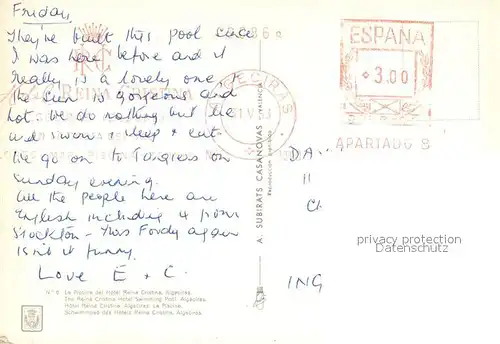 Friday
They've built this pool since
I was here before and it
really is a lovely one
the sun is gorgeous and
hot. We do nothing but lie
and swim & sleep & eat.
We go on to Tangiers on
Sunday evening.
All the people here are
English including 4 from
Stockton - Mrs Fordy again
Isn't it funny.
Love E + C.
Nº 8. La Piscine del Hotel Reina Cristina. Algeciras.
The Reina Cristina Hotel Swimming Pool. Algeciras.
Hotel Reina Cristina. Algeciras. La Piscine.
Schwimmbad des Hotels Reina Cristina. Algeciras.
A. SUBIRATS CASANOVAS
VALENCIA
REINA CRISTINA
ALGECIRAS
ESPAÑA
3.00
APARTADO 8
DA
H
ING
privacy protection
Datenschutz